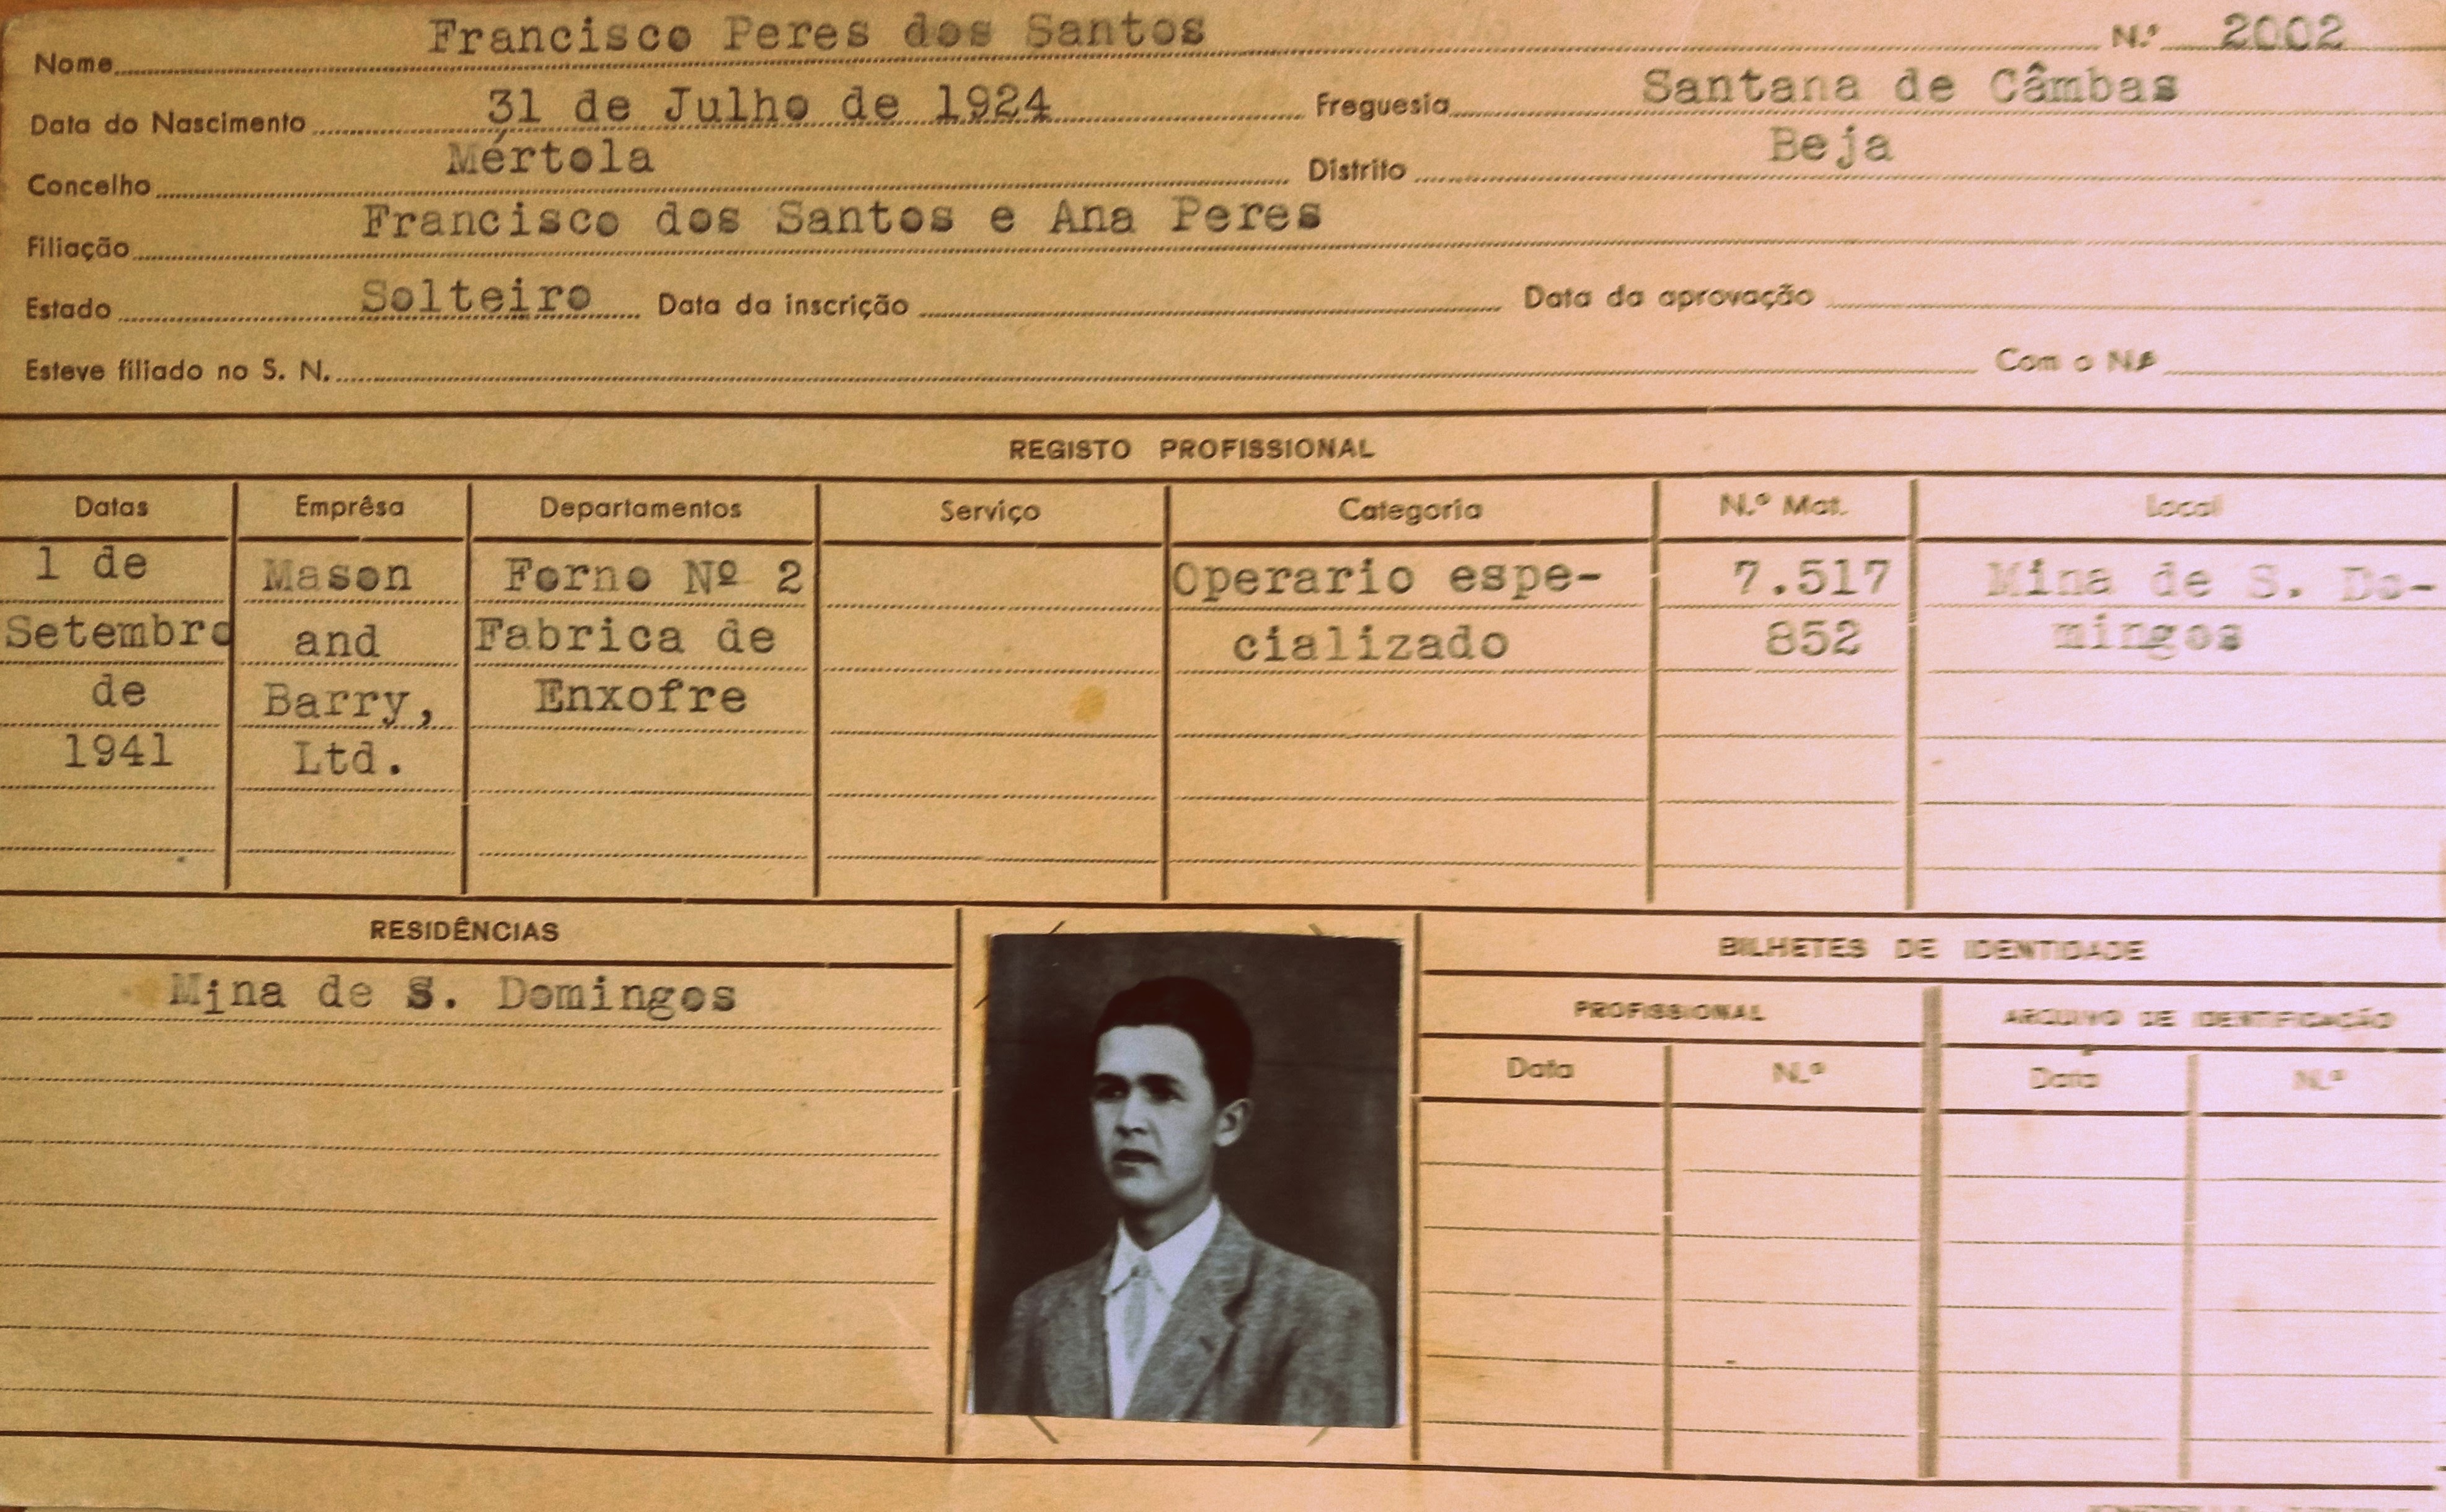 Nome Francisco Peres dos Santos N.º 2002
Data do Nascimento 31 de Julho de 1924 Freguesia Santana de Câmbas
Concelho Mértola Distrito Beja
Filiação Francisco dos Santos e Ana Peres
Estado Solteiro Data da inscrição Data da aprovação
Esteve filiado no S. N. Com o N.º
REGISTO PROFISSIONAL
Datas Emprêsa Departamentos Serviço Categoria N.º Mat. Local
1 de Mason Forno Nº 2 Operario espe- 7.517 Mina de S. Do-
Setembro and Fabrica de cializado 852 mingos
de Barry, Enxofre
1941 Ltd.
RESIDÊNCIAS
Mina de S. Domingos
BILHETES DE IDENTIDADE
PROFISSIONAL ARQUIVO DE IDENTIFICAÇÃO
Data N.º Data N.º